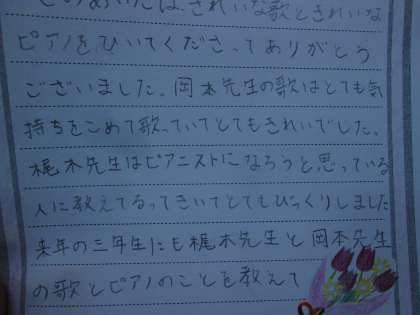 このあいだは、きれいな歌ときれいな
ピアノをひいてくださってありがとう
ございました。岡本先生の歌はとても気
持ちをこめて歌っていてとてもきれいでした。
梶木先生はピアニストになろうと思っている
人に教えてるってきいてとてもびっくりしました
来年の三年生にも梶木先生と岡本先生
の歌とピアノのことを教えて